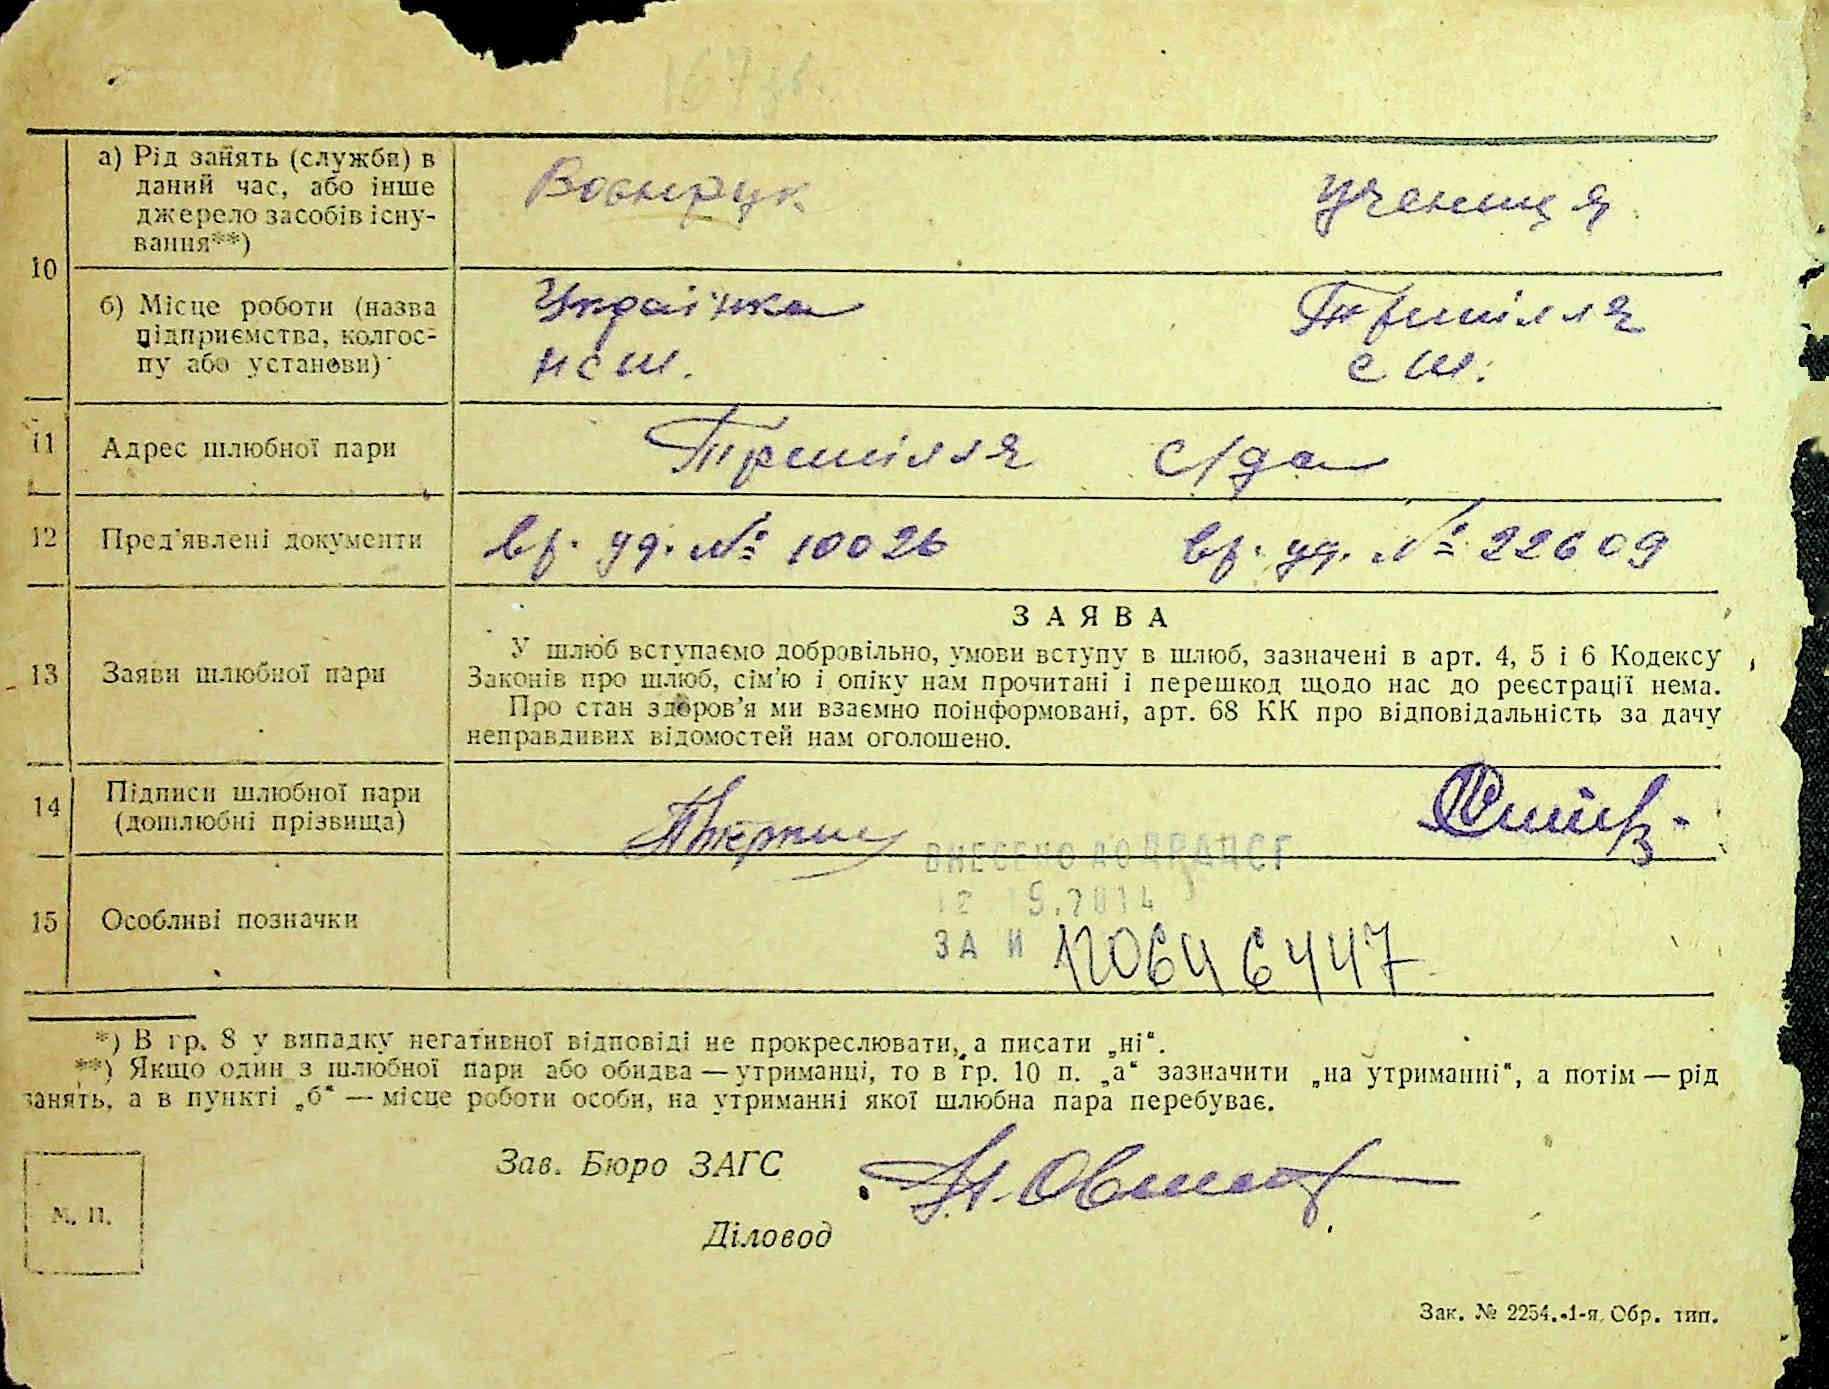 10
а) Рід занять (служби) в
даний час, або інше
джерело засобів існу-
вання**)
Воєнрук
Учениця
б) Місце роботи (назва
підприємства, колгос-
пу або установи)
Українка
Трипілля
НСШ.
СШ.
11 Адрес шлюбної пари
Трипілля с/да
12 Пред'явлені документи
вр. уд. № 10026
вр. уд. № 22609
13 Заяви шлюбної пари
ЗАЯВА
У шлюб вступаємо добровільно, умови вступу в шлюб, зазначені в арт. 4, 5 і 6 Кодексу
Законів про шлюб, сім'ю і опіку нам прочитані і перешкод щодо нас до реєстрації нема.
Про стан здоров'я ми взаємно поінформовані, арт. 68 КК про відповідальність за дачу
неправдивих відомостей нам оголошено.
14 Підписи шлюбної пари
(дошлюбні прізвища)
ВНЕСЕНО ДО ДРАЦСГ
15 Особливі позначки
ЗА №
*) В гр. 8 у випадку негативної відповіді не прокреслювати, а писати „ні“.
**) Якщо один з шлюбної пари або обидва — утриманці, то в гр. 10 п. „а“ зазначити „на утриманні“, а потім — рід
занять, а в пункті „б“ — місце роботи особи, на утриманні якої шлюбна пара перебуває.
Зав. Бюро ЗАГС
Діловод
М. П.
Зак. № 2254.-1-я Обр. тип.